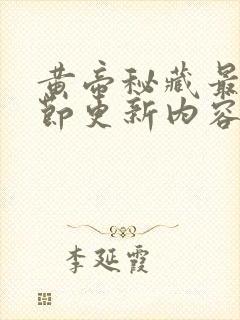 黄帝秘藏最
节更新内容
李延霞